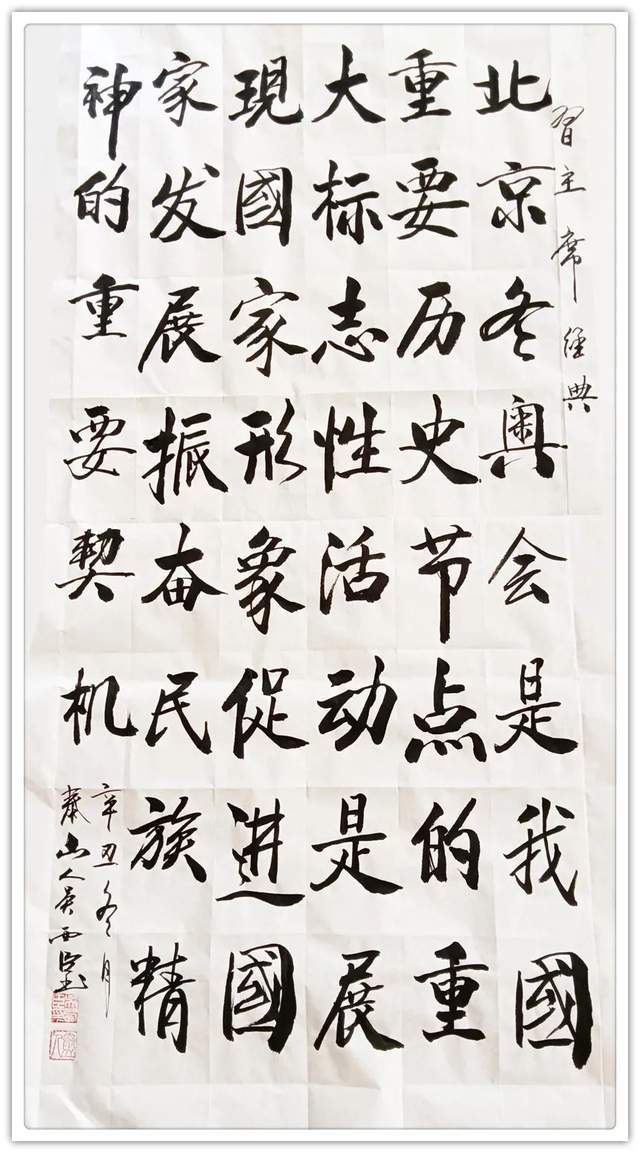 習主席经典
北京冬奥会是我國
重要历史节点的重
大标志性活动是展
現國家形象促進國
家发展振奋民族精
神的重要契机
辛丑冬月
泰山人吴西